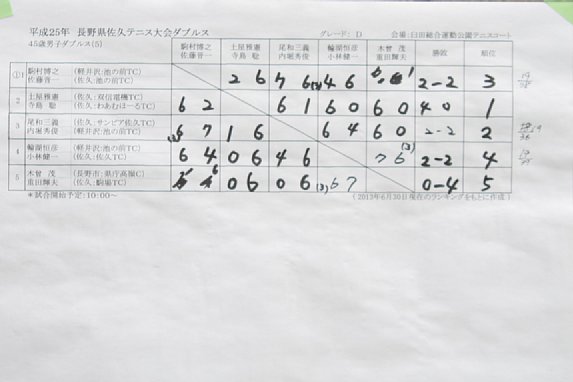 平成25年 長野県佐久テニス大会ダブルス グレード: D 会場: 臼田総合運動公園テニスコート
45歳男子ダブルス(5)
駒村博之 土屋雅憲 尾和三義 輪湖恒彦 木曾 茂 勝敗 順位
佐藤晋一 寺島 聡 内堀秀俊 小林健一 重田輝夫
① 駒村博之 (軽井沢:池の前TC) 2 6 7 6 4 6 2-2 3
佐藤晋一 (佐久:池の前TC)
2 土屋雅憲 (佐久:双信電機TC) 6 2 6 1 6 0 6 0 4 0 1
寺島 聡 (佐久:わあむほーるTC)
3 尾和三義 (佐久:サンピア佐久TC) 6 7 1 6 6 4 6 0 2-2 2
内堀秀俊 (軽井沢:池の前TC)
4 輪湖恒彦 (軽井沢:池の前TC) 6 4 0 6 4 6 7 6 (3) 2-2 4
小林健一 (佐久:佐久TC)
5 木曾 茂 (長野市:県庁高嶺C) 0 6 0 6 (3) 6 7 0-4 5
重田輝夫 (佐久:駒場TC)
*試合開始予定:10:00~ (2013年6月30日現在のランキングをもとに作成)